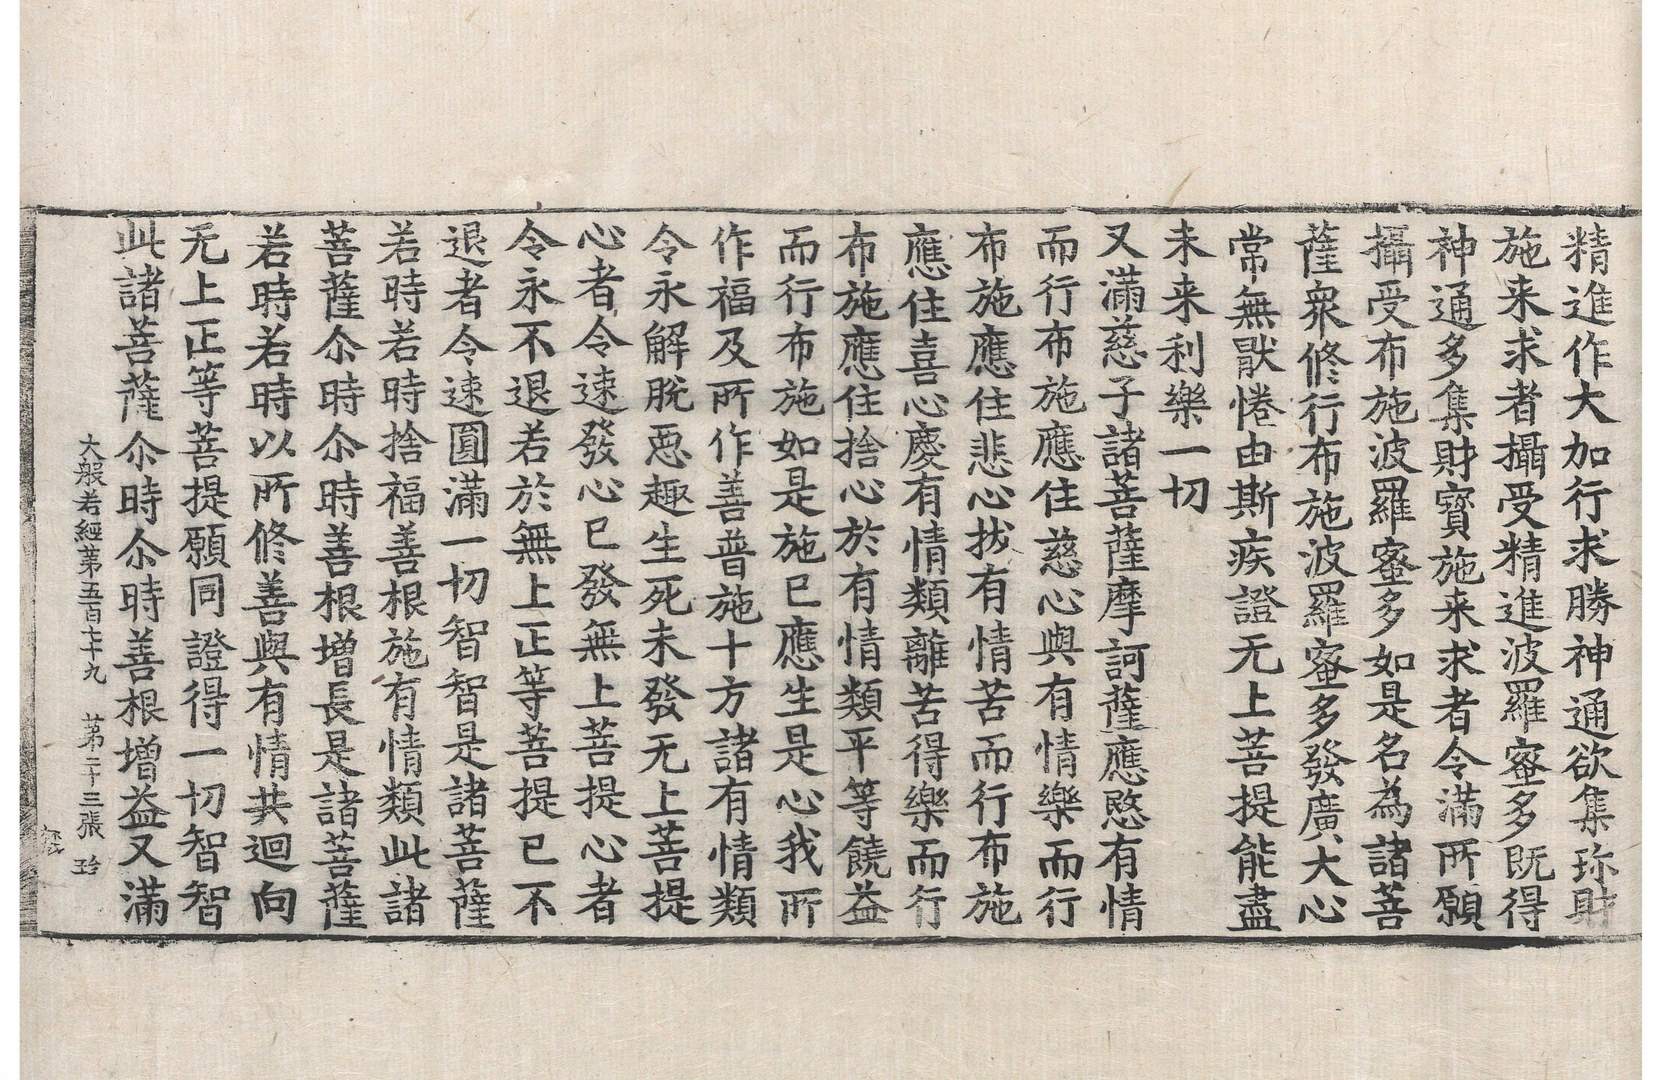 精進作大加行求勝神通欲集珎財
施来求者攝受精進波羅蜜多既得
神通多集財寳施来求者令滿所願
攝受布施波羅蜜多如是名為諸菩
薩衆修行布施波羅蜜多發廣大心
常無猒惓由斯疾證无上菩提能盡
未来利樂一切
又滿慈子諸菩薩摩訶薩應愍有情
而行布施應住慈心與有情樂而行
布施應住悲心拔有情苦而行布施
應住喜心慶有情類離苦得樂而行
布施應住捨心於有情類平等饒益
而行布施如是施已應生是心我所
作福及所作善普施十方諸有情類
令永解脫惡趣生死未發无上菩提
心者令速發心已發無上菩提心者
令永不退若於無上正等菩提已不
退者令速圓滿一切智智是諸菩薩
若時若時捨福善根施有情類此諸
菩薩尒時尒時善根增長是諸菩薩
若時若時以所修善與有情共迴向
无上正等菩提願同證得一切智智
此諸菩薩尒時尒時善根增益又滿
大般若經第五百七十九　第二十三張　玲